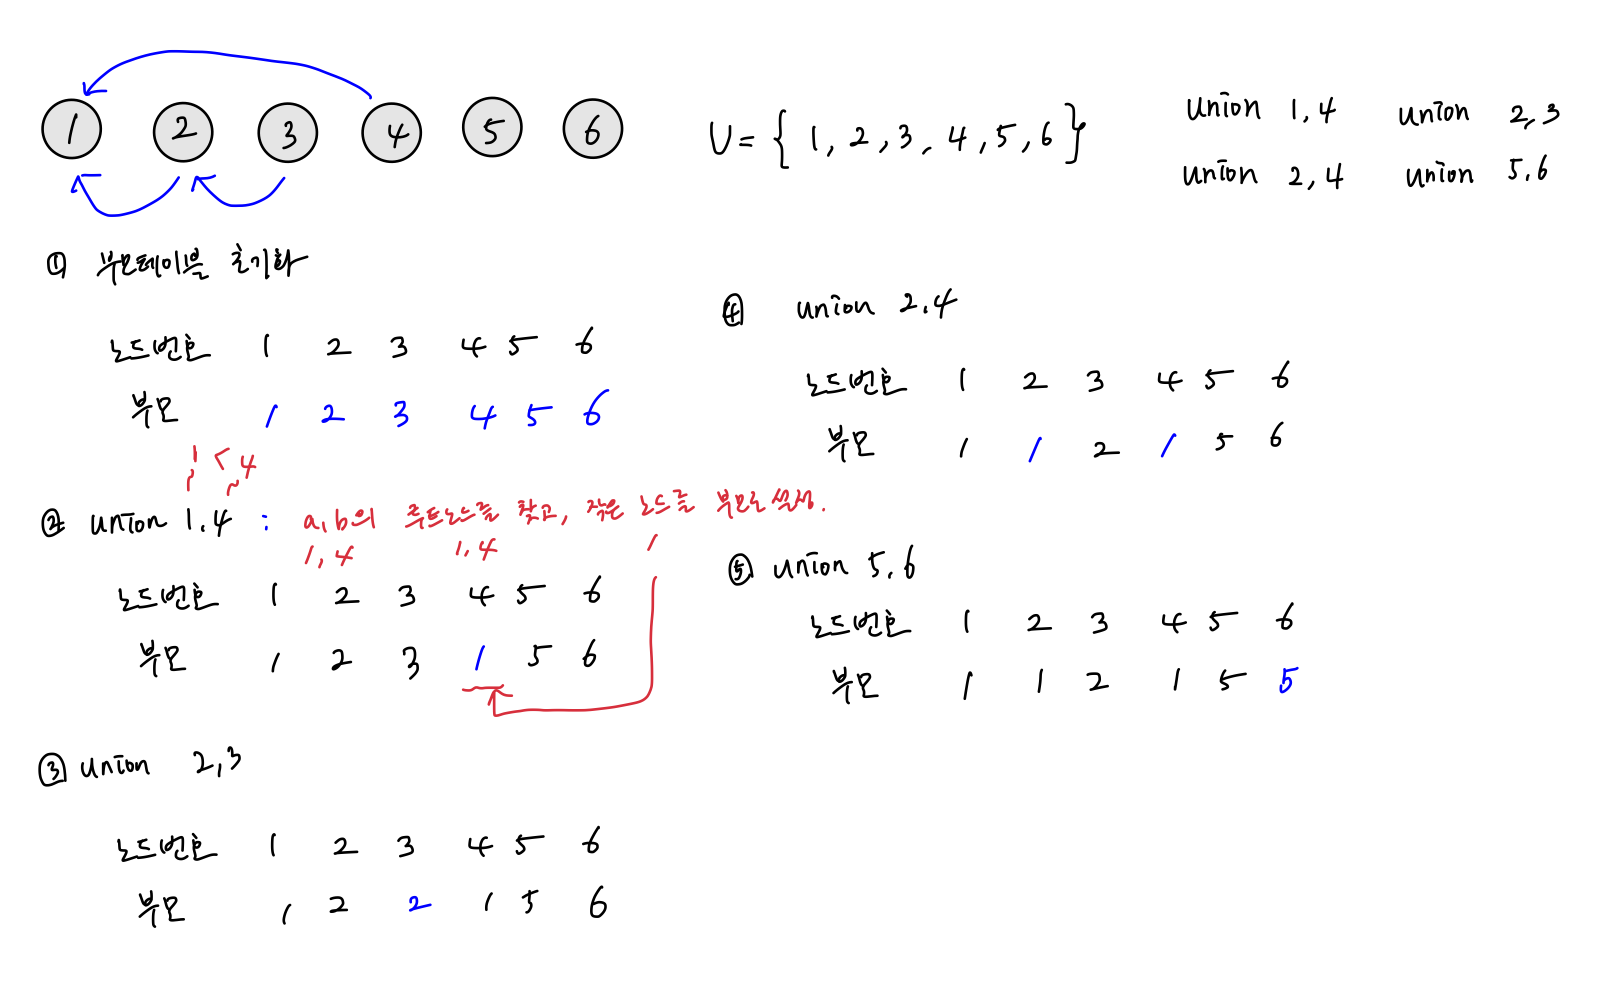 1 2 3 4 5 6
U = { 1, 2, 3, 4, 5, 6 }
union 1, 4 union 2, 3
union 2, 4 union 5, 6
① 부모테이블 초기화
노드번호 1 2 3 4 5 6
부모 1 2 3 4 5 6
1 < 4
② union 1, 4 : a, b의 루트노드를 찾고, 작은 노드를 부모로 설정.
1, 4 1, 4 1
노드번호 1 2 3 4 5 6
부모 1 2 3 1 5 6
③ union 2, 3
노드번호 1 2 3 4 5 6
부모 1 2 2 1 5 6
④ union 2, 4
노드번호 1 2 3 4 5 6
부모 1 1 2 1 5 6
⑤ union 5, 6
노드번호 1 2 3 4 5 6
부모 1 1 2 1 5 5